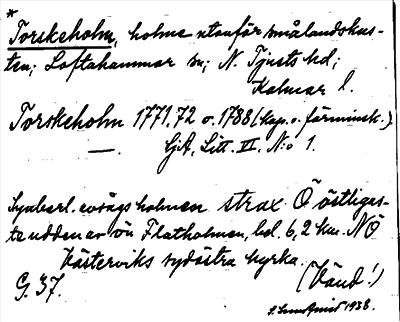 *
Torskeholm, holme utanför smålandskus-
ten; Loftahammar sn; N. Tjusts hd;
Kalmar l.
Torskeholm 1771.72 o. 1788 (kap. o. förminsk.)
—. GjA, Litt. VI. N:o 1.
Synberl. holmen strax Ö östligas-
te udden av ön Flatholmen, bel. 6,2 km. NÖ
Västerviks sydöstra kyrka.
G. 37. (Vänd!)
1938.